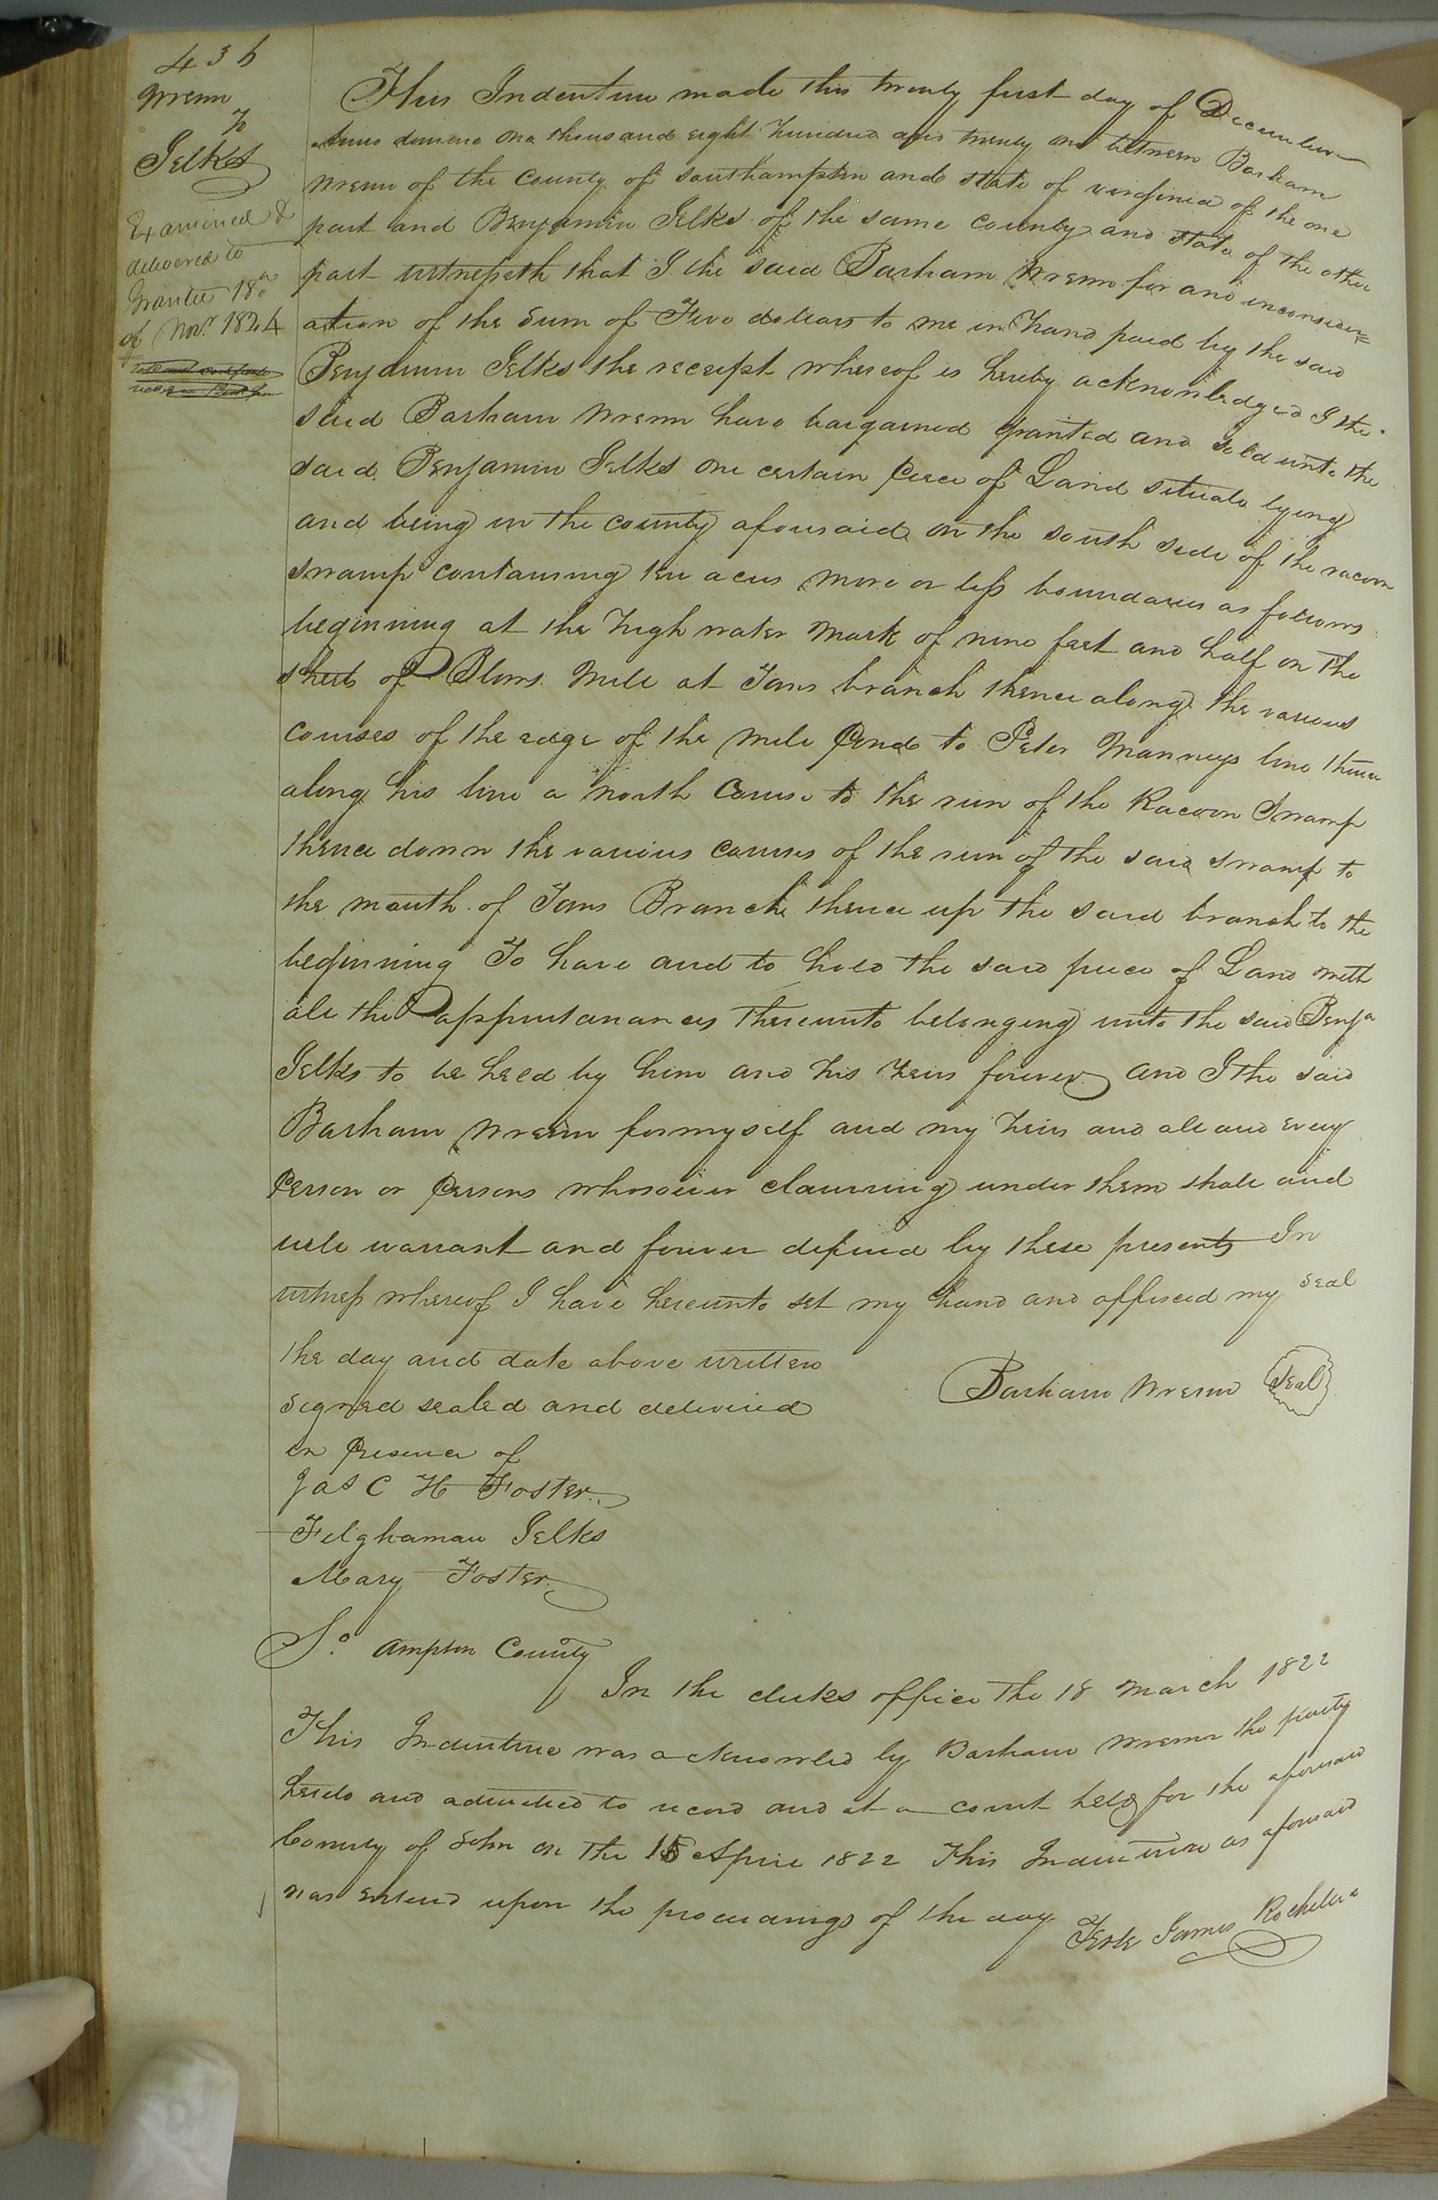 436
Wrenn
To
Jelks
Examined &
delivered to
Grantee 18th
of Novr 1824
This Indenture made this twenty first day of December
anno domino one thousand eight hundred and twenty one between Barham
Wrenn of the County of Southampton and state of virginia of the one
part and Benjamin Jelks of the same county and state of the other
part witnesseth that I the said Barham Wrenn for and inconsider=
ation of the Sum of Five dollars to me in hand paid by the said
Benjamin Jelks the receipt whereof is hereby acknowledged I the
said Barham Wrenn have bargained granted and sold unto the
said Benjamin Jelks one certain Piece of Land situate lying
and being in the county aforesaid on the south side of the racoon
swamp containing ten acres more or less boundaries as follows
beginning at the high water mark of nine feet and half on the
of Blows Mill at Jans branch thence along the various
courses of the edge of the mill Pond to Peter Manneys line thence
along his line a north Course to the run of the Racoon Swamp
thence down the various courses of the run of the said swamp to
the mouth of Jans Branch thence up the said branch to the
beginning To have and to hold the said piece of Land with
all the appurtanances thereunto belonging unto the said Benja
Jelks to be held by him and his heirs forever and I the said
Barham Wrenn for myself and my heirs and all and every
Person or Persons whosoever claiming under them shall and
will warrant and forever defend by these presents In
witness whereof I have hereunto set my hand and affixed my seal
the day and date above written
Barham Wrenn Seal
signed sealed and delivered
in Presence of
Jas C H Foster
Filghaman Jelks
Mary Foster
So ampton County
In the clerks office the 18 March 1822
This Indenture was acknowled by Barham Wrenn the party
hereto and admitted to record and at a court held for the aforesaid
County of Sohn on the 15 April 1822 This Indenture as aforesaid
was entered upon the proceedings of the day
Teste James Rochelle